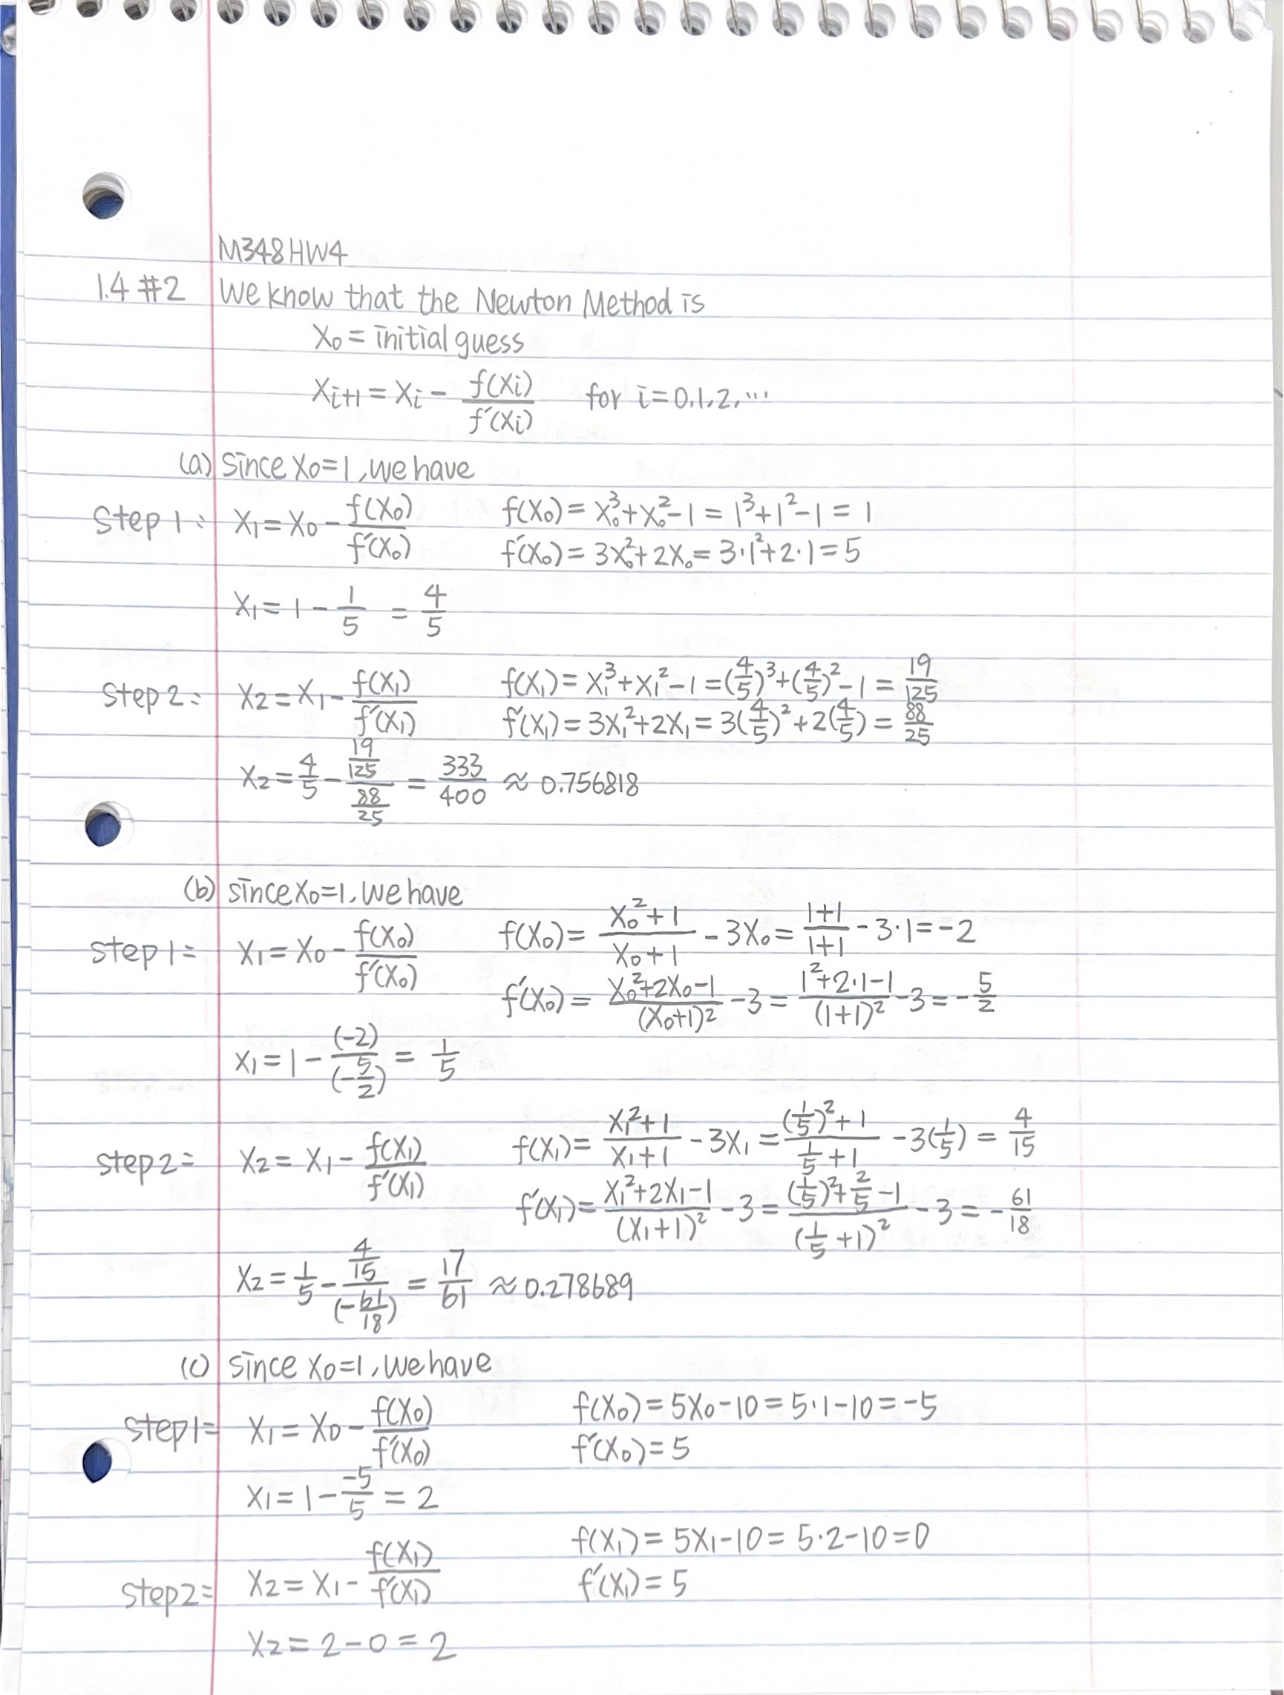 M348HW4
1.4 #2 We know that the Newton Method is
X₀ = initial guess
Xᵢ₊₁ = Xᵢ - f(Xᵢ)/f'(Xᵢ) for i=0,1,2,...
(a) Since X₀=1, we have
Step 1: X₁ = X₀ - f(X₀)/f'(X₀) f(X₀) = X₀³+X₀²-1 = 1³+1²-1 = 1
f'(X₀) = 3X₀²+2X₀ = 3·1²+2·1 = 5
X₁ = 1 - 1/5 = 4/5
Step 2: X₂ = X₁ - f(X₁)/f'(X₁) f(X₁) = X₁³+X₁²-1 = (4/5)³+(4/5)²-1 = 19/125
f'(X₁) = 3X₁²+2X₁ = 3(4/5)²+2(4/5) = 88/25
X₂ = 4/5 - (19/125)/(88/25) = 333/400 ≈ 0.756818
(b) since X₀=1, we have
Step 1= X₁ = X₀ - f(X₀)/f'(X₀) f(X₀) = (X₀²+1)/(X₀+1) - 3X₀ = (1+1)/(1+1) - 3·1 = -2
f'(X₀) = (X₀²+2X₀-1)/(X₀+1)² - 3 = (1²+2·1-1)/(1+1)² - 3 = -5/2
X₁ = 1 - (-2)/(-5/2) = 1/5
Step 2= X₂ = X₁ - f(X₁)/f'(X₁) f(X₁) = (X₁²+1)/(X₁+1) - 3X₁ = ((1/5)²+1)/(1/5+1) - 3(1/5) = 4/15
f'(X₁) = (X₁²+2X₁-1)/(X₁+1)² - 3 = ((1/5)²+2/5-1)/(1/5+1)² - 3 = -61/18
X₂ = 1/5 - (4/15)/(-61/18) = 17/61 ≈ 0.278689
(c) Since X₀=1, we have
Step 1= X₁ = X₀ - f(X₀)/f'(X₀) f(X₀) = 5X₀-10 = 5·1-10 = -5
f'(X₀) = 5
X₁ = 1 - -5/5 = 2
f(X₁) = 5X₁-10 = 5·2-10 = 0
Step 2= X₂ = X₁ - f(X₁)/f'(X₁) f'(X₁) = 5
X₂ = 2-0 = 2